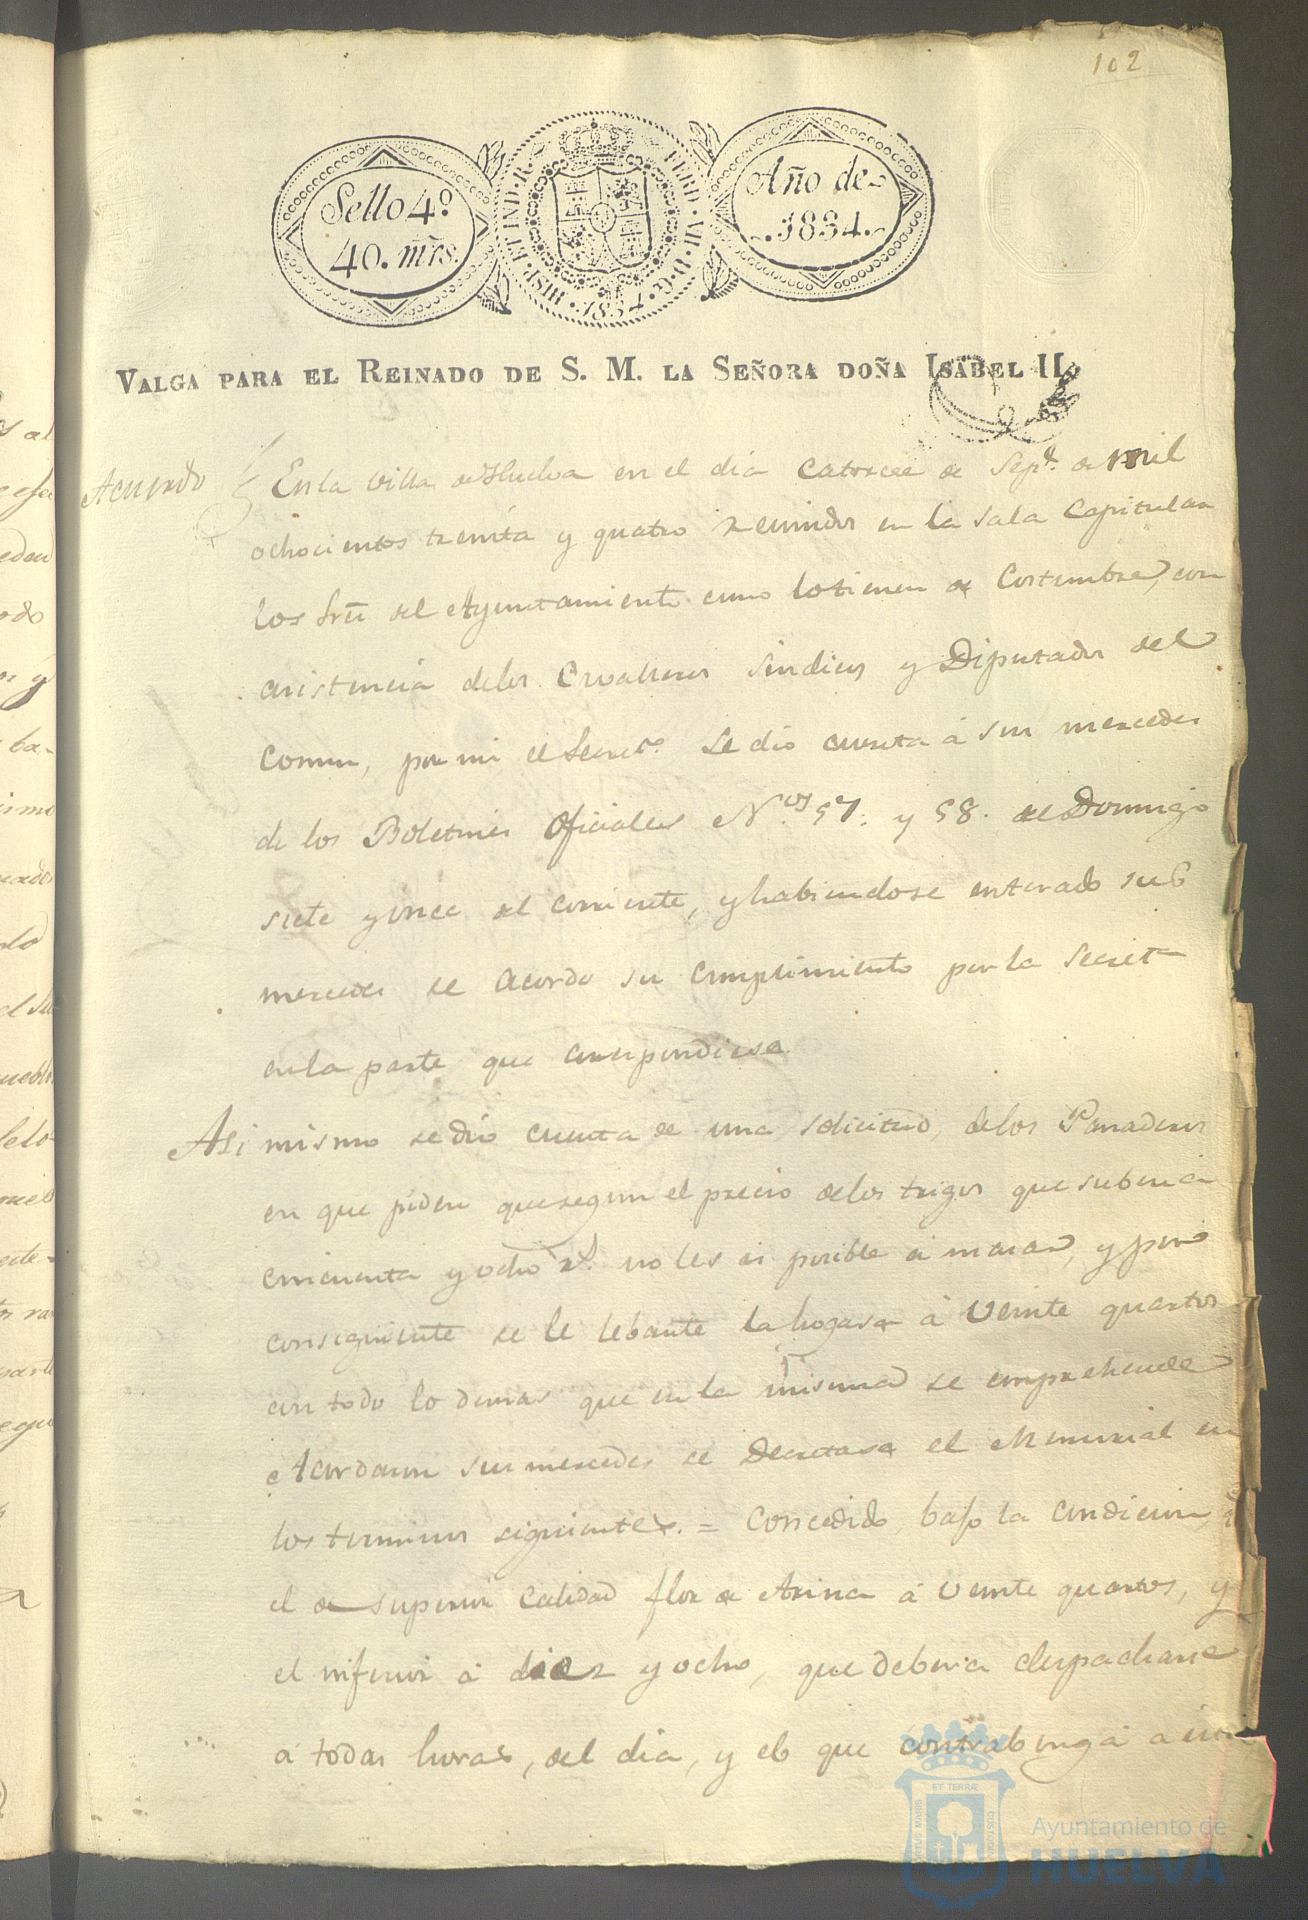 102
Sello 4º
40. mrs.
HISP. ET IND. R. FERD. VII. D. G. 1834
Año de
1834.
VALGA PARA EL REINADO DE S. M. LA SEÑORA DOÑA ISABEL II.
Acuerdo
En la Villa de Huelva en el dia catorce de Sepe. de mil
ochocientos treinta y quatro reunidos en la sala Capitular
los Sres del Ayuntamiento como lo tienen de Costumbre, con
asistencia delos Cavalleros Sindicos y Diputados del
Comun, por mi el Secreto. se dio cuenta á sus mercedes
de los Boletines Oficiales Nos 57. y 58. de Domingo
siete y once del corriente, y habiendose enterado sus
mercedes se acordo su cumplimiento por la Secreta
en la parte que correspondiese
Asi mismo se dio cuenta de una solicitud, delos Panaderos
en que piden que segun el precio delos trigos que suben á
cincuenta y ocho rs. no les es posible amasar, y por
consiguiente se le lebante la hogasa á Veinte quartos
con todo lo demas que en la misma se comprehende
Acordaron sus mercedes se Decretase el Memorial en
los terminos siguientes. = Concedido bajo la condicion q
el de superior Calidad flor de Arina á Veinte quartos, y
el inferior á diez y ocho, que deberá despacharse
á todas horas, del dia, y el que contrabenga a
ET TERRÆ
PORTUS MARIS
CUSTODIA
Ayuntamiento de
HUELVA